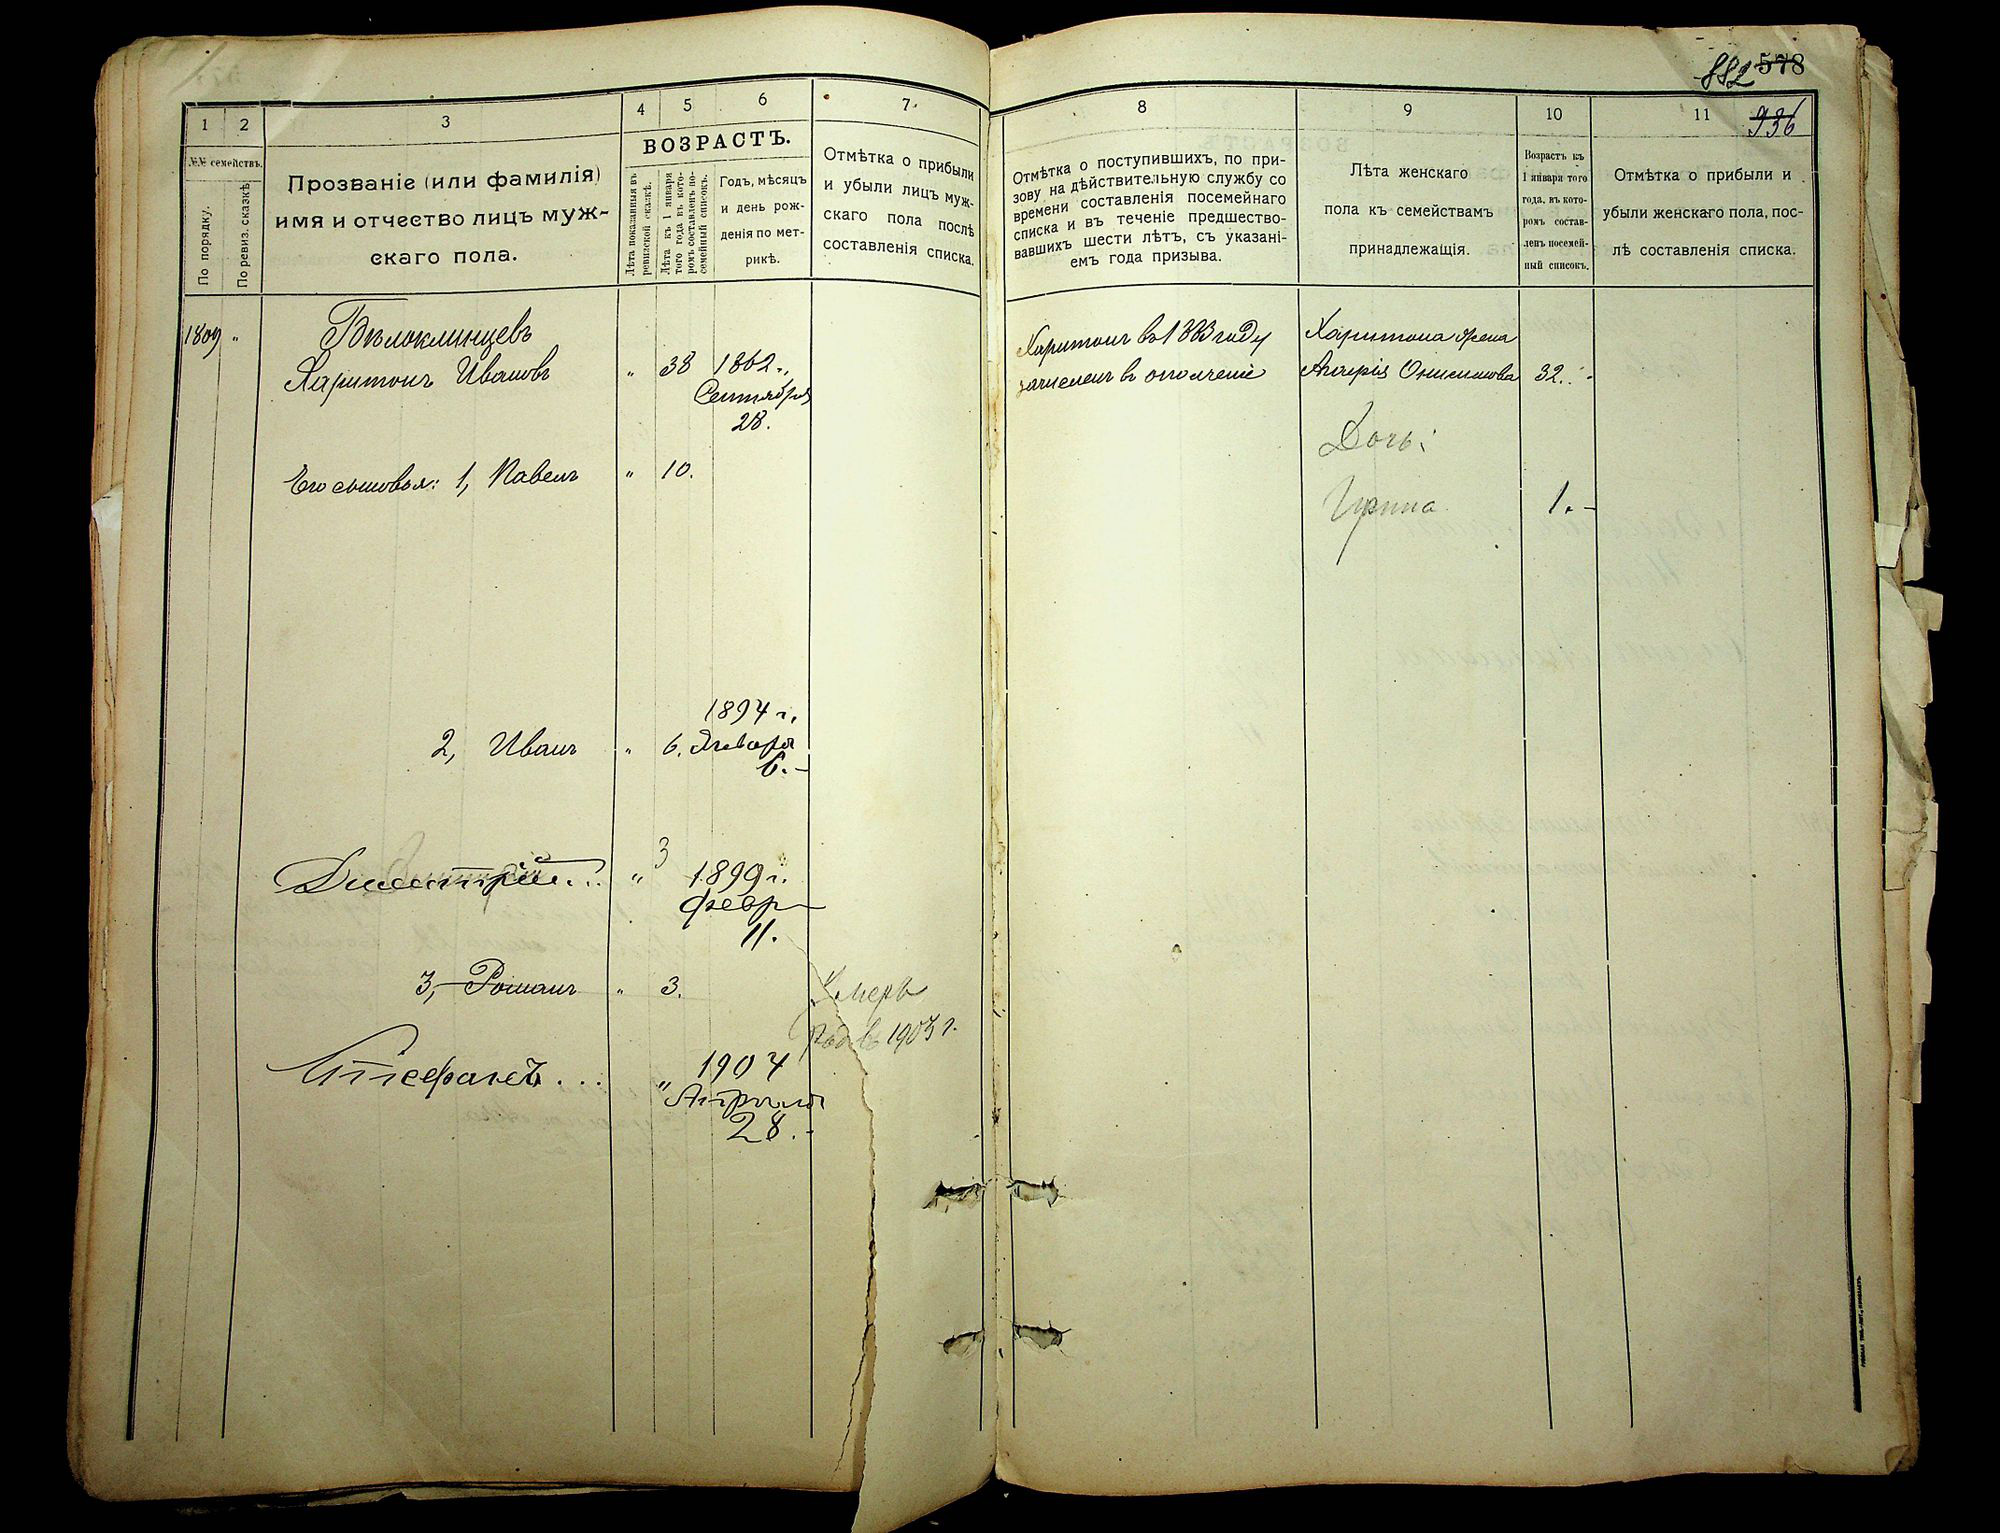 882 578
936
1
2
3
4
5
6
7
8
9
10
11
№№ семействъ.
По порядку.
По ревиз. сказкѣ
Прозваніе (или фамилія)
имя и отчество лицъ муж-
скаго пола.
ВОЗРАСТЪ.
Лѣта показанныя въ
ревизской сказкѣ.
Лѣта къ 1 января
того года въ кото-
ромъ составленъ по-
семейный списокъ.
Годъ, мѣсяцъ
и день рож-
денія по мет-
рикѣ.
Отмѣтка о прибыли
и убыли лицъ муж-
скаго пола послѣ
составленія списка.
Отмѣтка о поступившихъ, по при-
зову на дѣйствительную службу со
времени составленія посемейнаго
списка и въ теченіе предшество-
вавшихъ шести лѣтъ, съ указані-
емъ года призыва.
Лѣта женскаго
пола къ семействамъ
принадлежащія.
Возрастъ къ
1 января того
года, въ кото-
ромъ состав-
ленъ посемей-
ный списокъ.
Отмѣтка о прибыли и
убыли женскаго пола, пос-
лѣ составленія списка.
1809 "
Бѣлоклинцевъ
Харитонъ Ивановъ " 38 1862 г.
Сентября
28.
Харитонъ въ 1883 году
зачисленъ в ополченіе
Харитона жена
Онисимова 32.
Дочь:
Ирина 1.-
Его сыновья: 1, Павелъ " 10.
1894 г.
2, Иванъ " 6. Января
6.-
3
Дмитрій... " 1899 г.
февр
11.
3, Романъ " 3. Умеръ
въ 1903 г.
Стефанъ... " 1904
Апрѣля
28.-